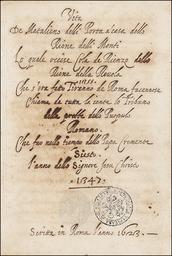 Vita
De Mataliano delli Porta à casa dello
Rione delli Monti
Lo quale occise Cola de Rienzo dello
Rione della
Che s'era fatto Tiranno de Roma facennose
Chiama da tutta la iente lo Tribuno
della prebbe delli Puopoli
Romano.
Che fao nello tiempo dello Papa Cremente
Siesto
l'anno dello Signore Jesu Christo
1347
Scritta in Roma l'anno 1623